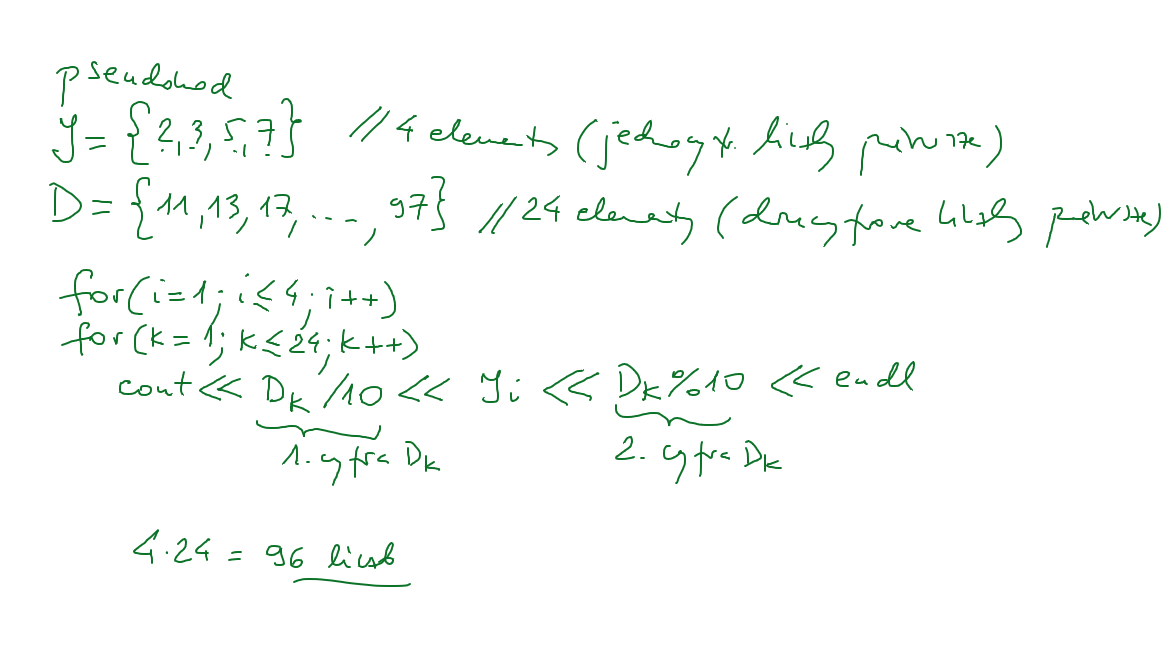 pseudokod
J = {2,3,5,7} // 4 elementy (jednocyfr. liczby pierwsze)
D = {11,13,17,...,97} // 24 elementy (dwucyfrowe liczby pierwsze)
for(i=1; i≤4; i++)
for(k=1; k≤24; k++)
cout << Dk/10 << Ji << Dk%10 << endl
1. cyfra Dk 2. cyfra Dk
4·24 = 96 liczb